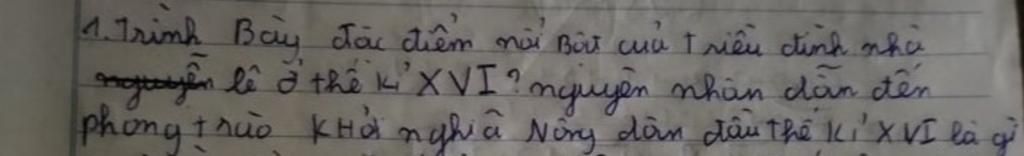 1. Trình Bày đặc điểm nổi Bật của triều đình nhà
nguyễn lê ở thế kỉ XVI? nguyên nhân dẫn đến
phong trào KHởi nghĩa Nông dân đầu thế kỉ XVI là gì